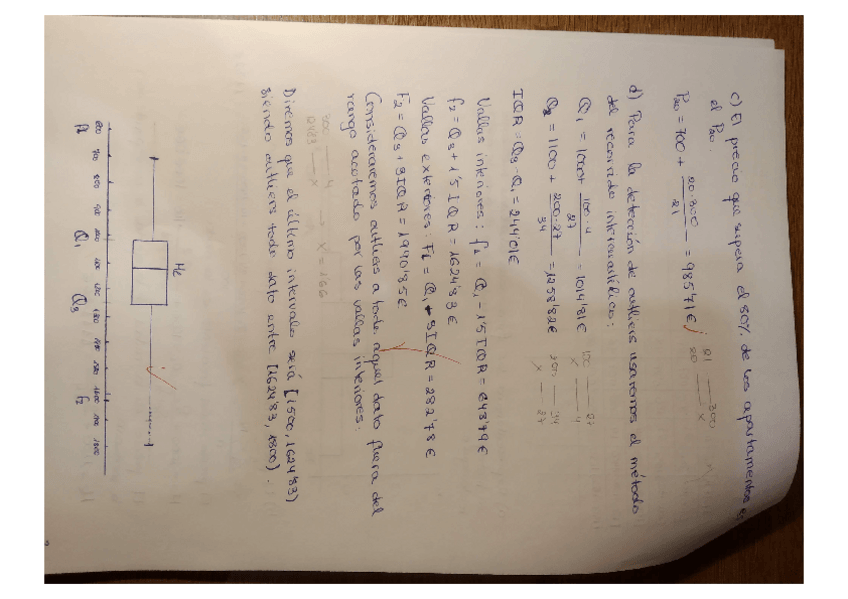 c) El precio que supera el 80% de los apartamentos es
el P₂₀.
P₂₀ = 700 + 20·300/21 = 985'71€
21 — 300
20 — x
d) Para la detección de outliers usaremos el método
del recorrido intercuartílico:
Q₁ = 1000 + 100·4/27 = 1014'81€
100 — 27
x — 4
Q₃ = 1100 + 200·27/34 = 1258'82€
200 — 34
x — 27
IQR = Q₃ - Q₁ = 244'01€
Vallas interiores: f₁ = Q₁ - 1'5 IQR = 648'79€
f₂ = Q₃ + 1'5 IQR = 1624'83€
Vallas exteriores: F₁ = Q₁ - 3IQR = 282'78€
F₂ = Q₃ + 3IQR = 1990'85€
Consideraremos outliers a todo aquel dato fuera del
rango acotado por las vallas interiores.
300 — 4
→ x = 1'66
Diremos que el último intervalo será [1500, 1624'83)
siendo outliers todo dato entre [1624'83, 1800).
Me
f₁ Q₁ Q₃ f₂